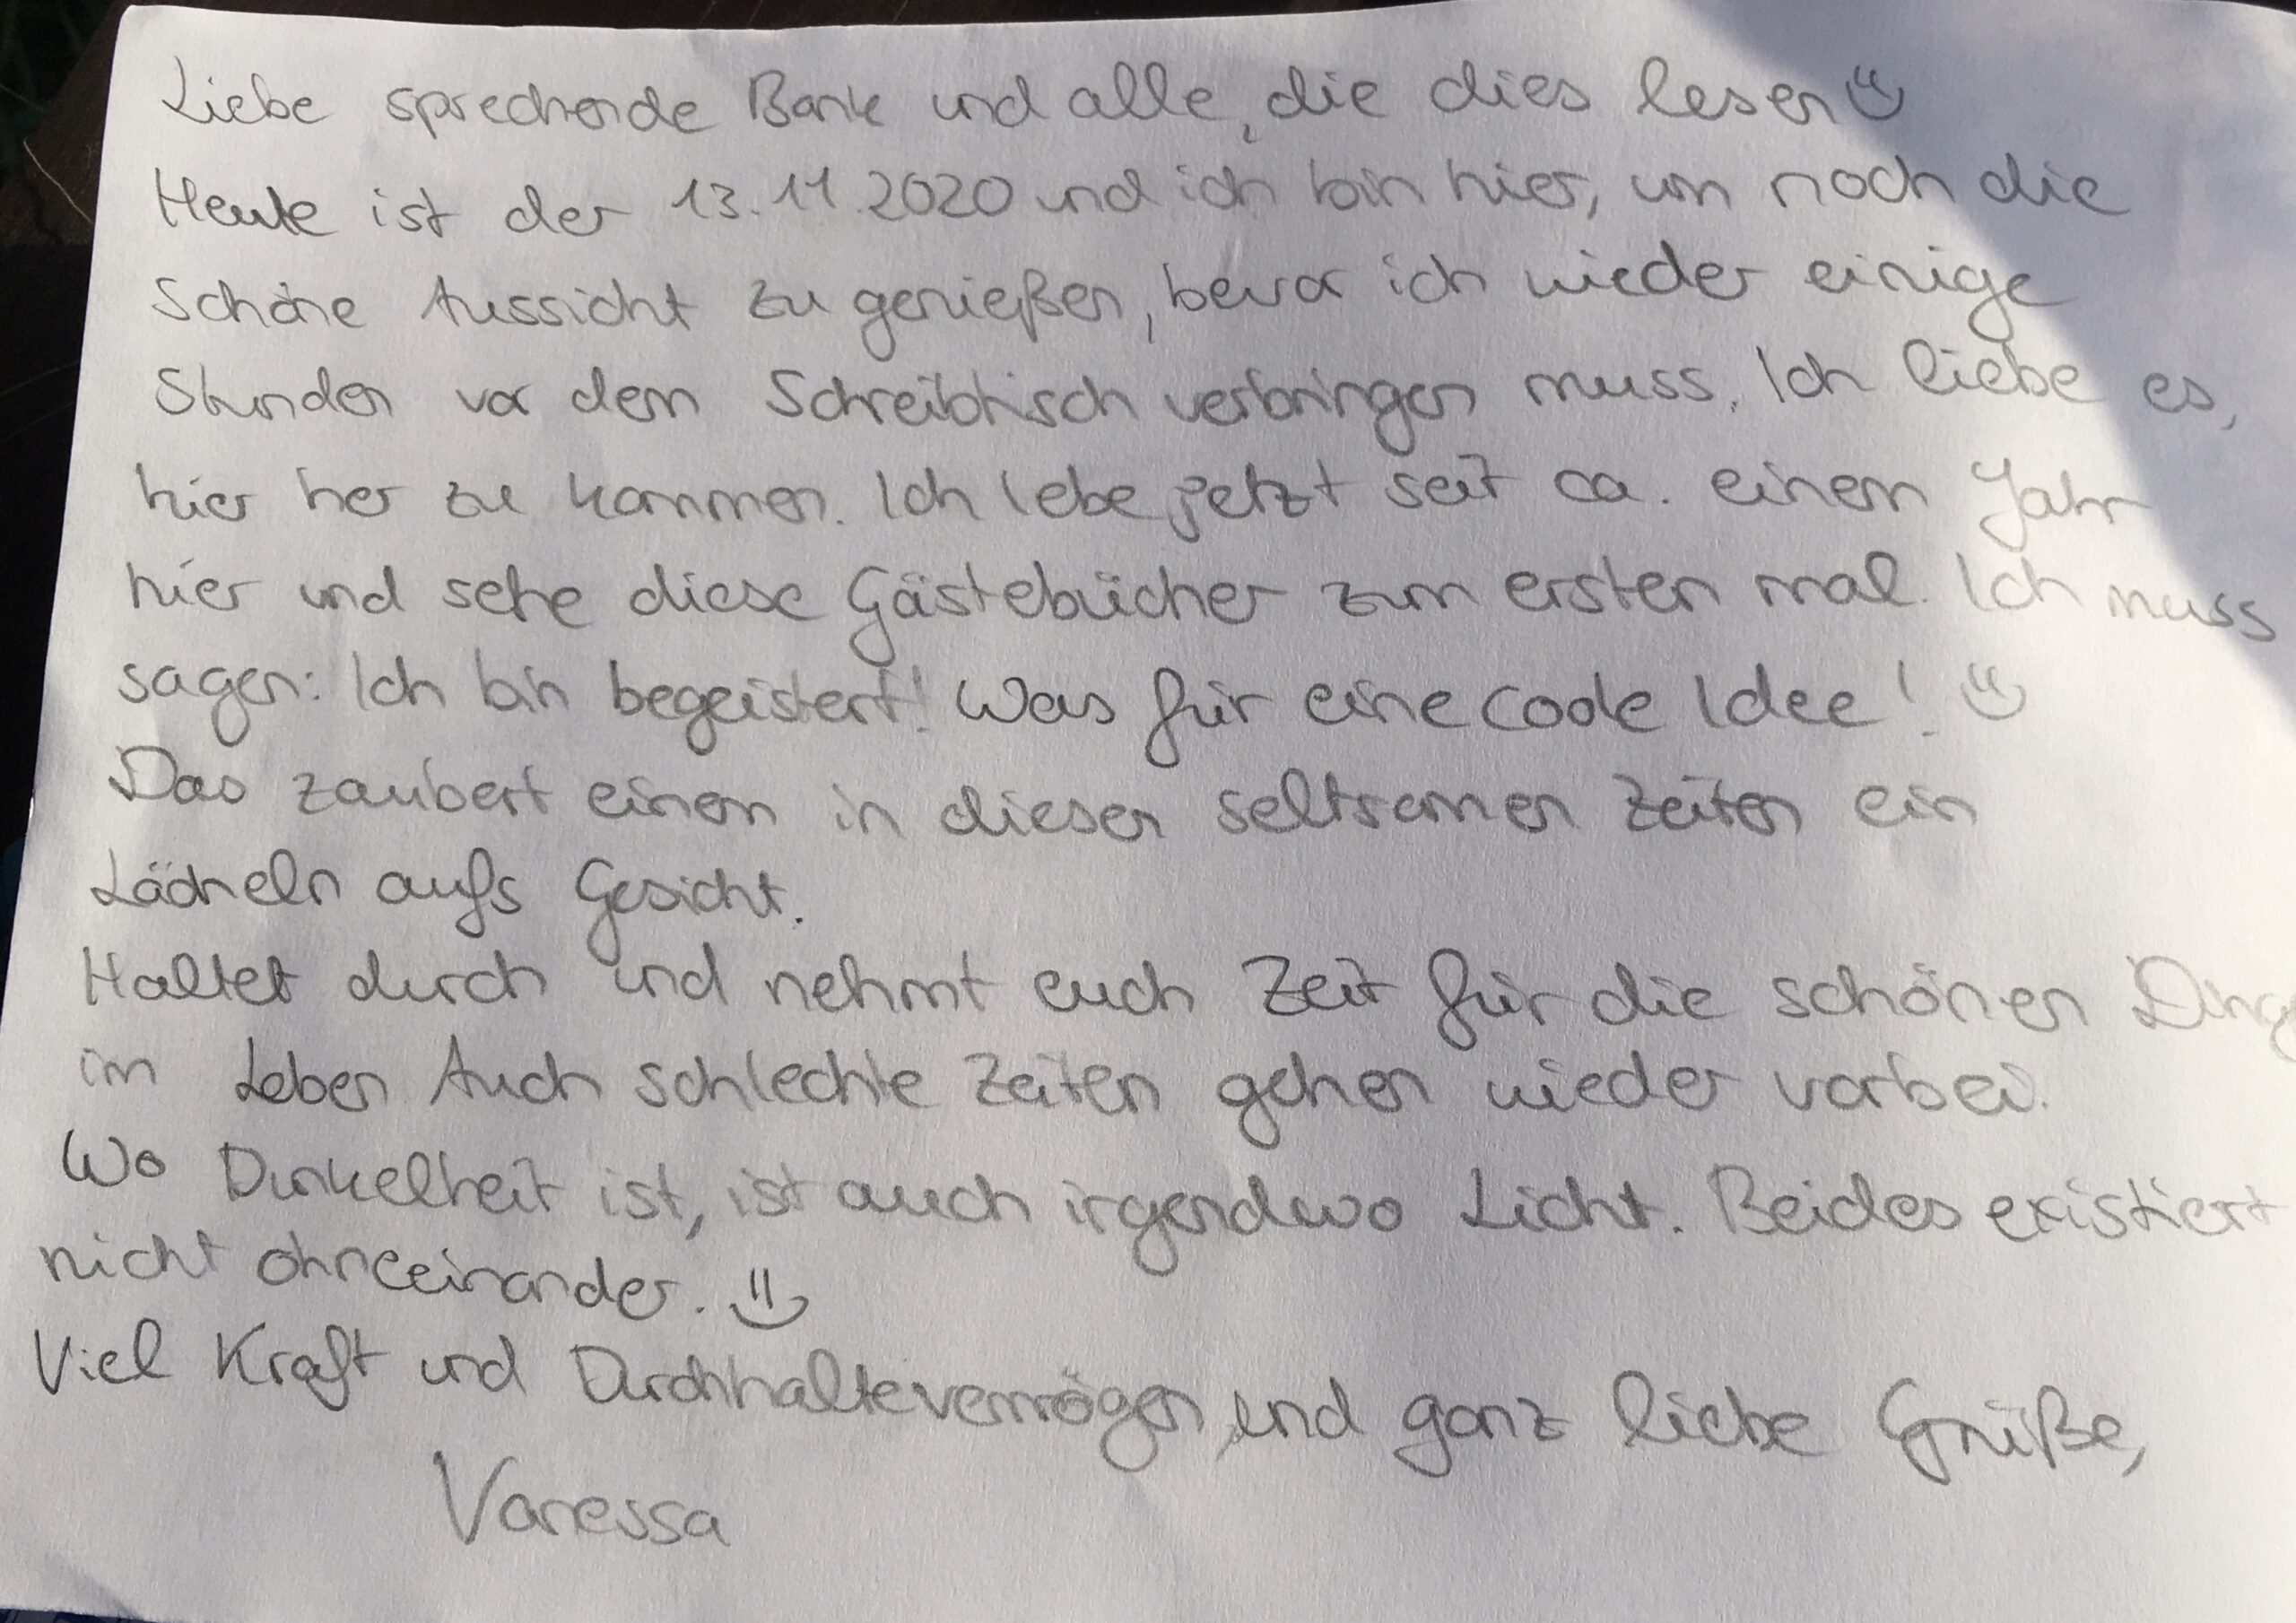 Liebe sprechende Bank und alle, die dies lesen
Heute ist der 13.11.2020 und ich bin hier, um noch die
Schöne Aussicht zu genießen, bevor ich wieder einige
Stunden vor dem Schreibtisch verbringen muss. Ich liebe es,
hier her zu kommen. Ich lebe jetzt seit ca. einem Jahr
hier und sehe diese Gästebücher zum ersten mal. Ich muss
sagen: Ich bin begeistert! Was für eine coole Idee!
Das zaubert einem in diesen seltsamen Zeiten ein
Lächeln aufs Gesicht.
Haltet durch und nehmt euch Zeit für die schönen Ding
im Leben Auch schlechte Zeiten gehen wieder vorbei.
Wo Dunkelheit ist, ist auch irgendwo Licht. Beides existiert
nicht ohneeinander.
Viel Kraft und Durchhaltevermögen und ganz liebe Grüße,
Vanessa